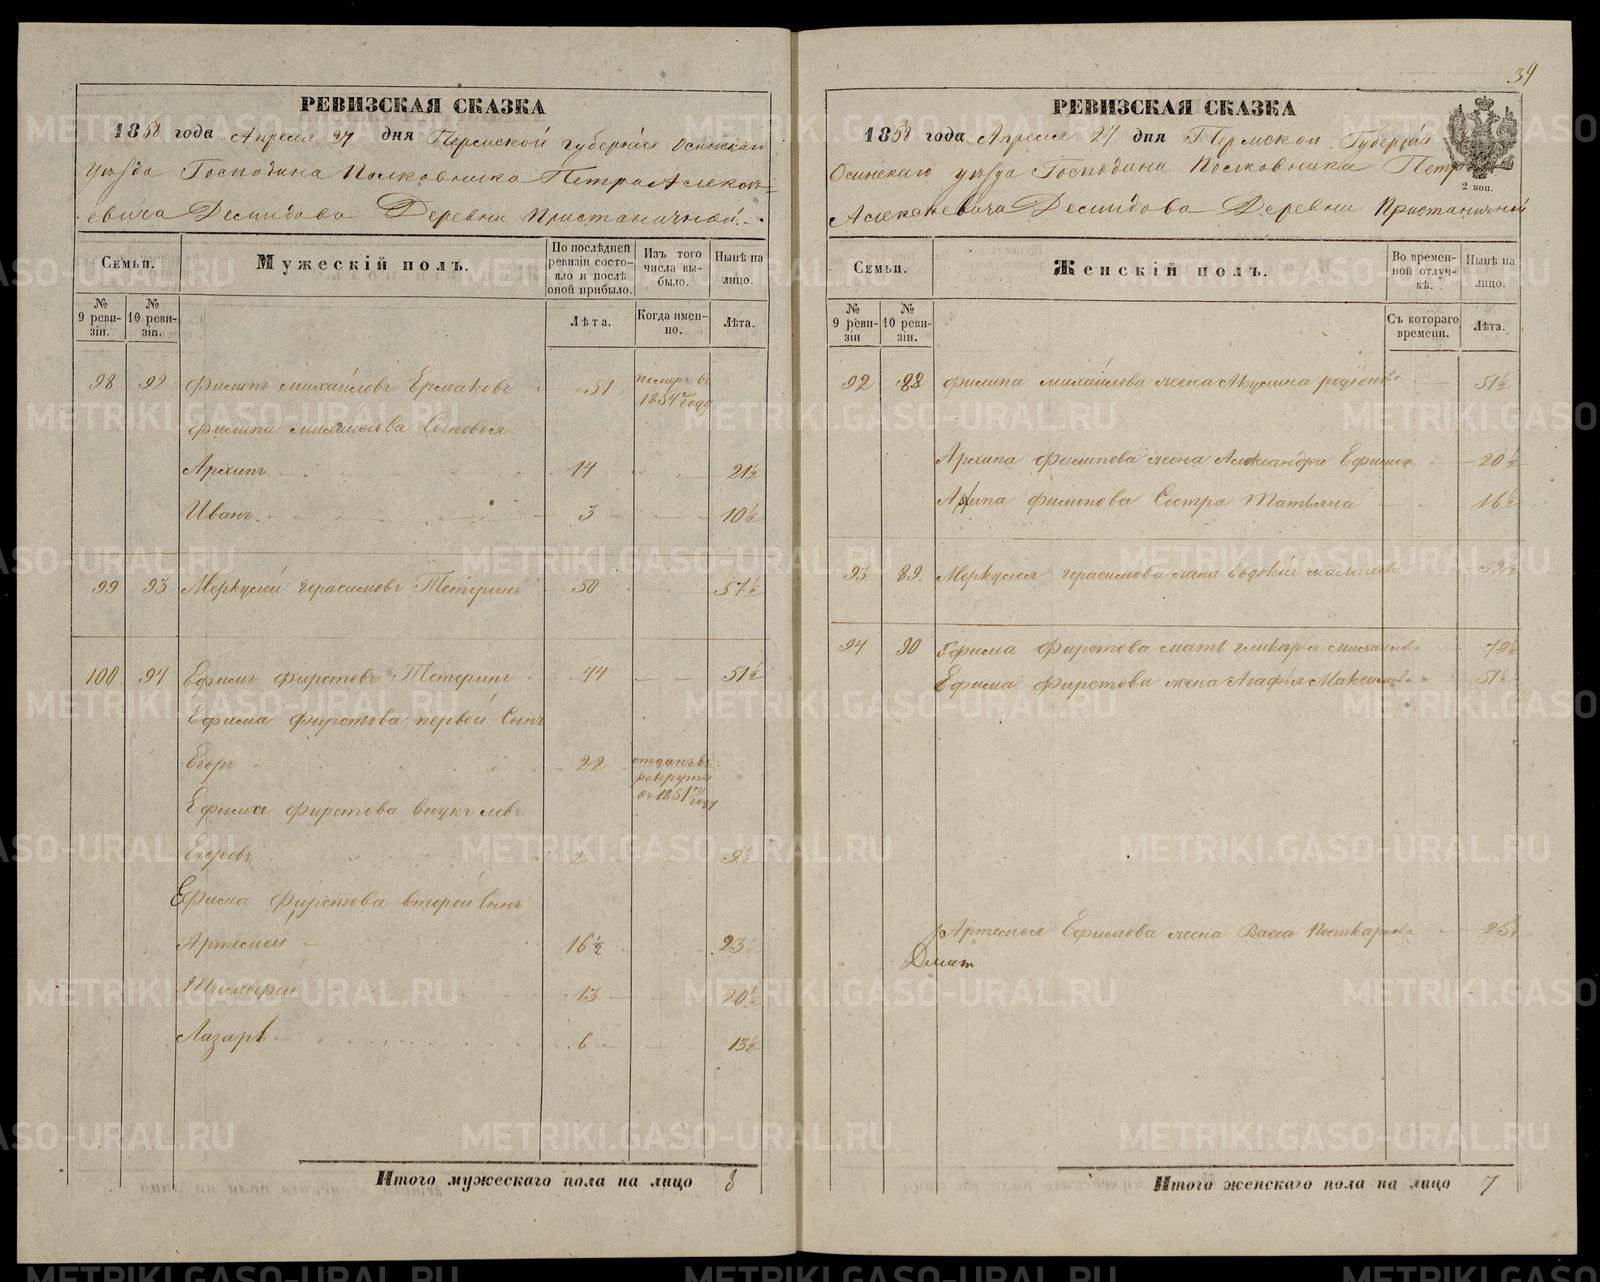 34
РЕВИЗСКАЯ СКАЗКА
1858 года Апреля 27 дня Пермской губернии Осинскаго
уѣзда Господина Полковника Петра Алекси-
евича Демидова Деревни Пристаничной
Семьи.
Мужескій полъ.
По послѣдней ревизіи состояло и послѣ оной прибыло.
Изъ того числа выбыло.
Нынѣ на лицо.
№ 9 ревизіи.
№ 10 ревизіи.
Лѣта.
Когда именно.
Лѣта.
98 92 Филипъ Михайловъ Ермаковъ 51 померъ въ 1854 году
Филипа Михайлова Сыновья
Архипъ 14 21½
Иванъ 3 10½
99 93 Меркулей Герасимовъ Тетеринъ 50 57½
100 94 Ефимъ Фирстовъ Тетеринъ 44 51½
Ефима Фирстова первой Сынъ
Егоръ 22 отданъ въ рекруты въ 1851 году
Ефима Фирстова внукъ Левъ
Егоровъ 2 9½
Ефима Фирстова второй Сынъ
Артемей 16½ 23½
Тимофей 13 20½
Лазарь 6 13½
Итого мужескаго пола на лицо 8
РЕВИЗСКАЯ СКАЗКА
1858 года Апреля 27 дня Пермской Губерніи
Осинскаго уѣзда Господина Полковника Петра
Алексеевича Демидова Деревни Пристаничной
2 коп.
Семьи.
Женскій полъ.
Во временной отлучкѣ.
Нынѣ на лицо.
№ 9 ревизіи
№ 10 ревизіи.
Съ котораго времени.
Лѣта.
92 88 Филипа Михайлова жена Акулина Родіонова 51½
Архипа Филипова жена Александра Ефимова 20½
Архипа Филипова Сестра Татьяна 16½
93 89. Меркулея Герасимова жена Евдокія 52½
94 90 Ефима Фирстова мать Гликерья Михайлова
Ефима Фирстова жена Агафья Максимова 51½
Артемья Ефимова жена Васса Поликарпова 25½
Итого женскаго пола на лицо 7
METRIKI.GASO-URAL.RU